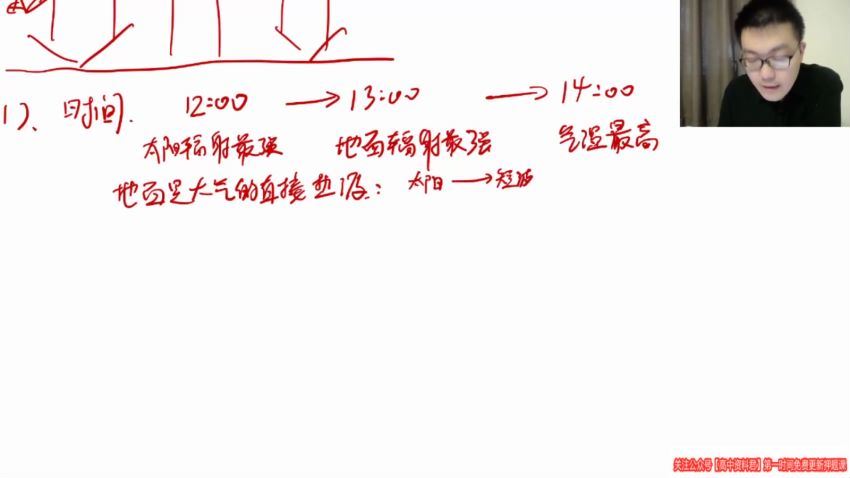 1)、时间. 12:00 → 13:00 → 14:00
太阳辐射最强 地面辐射最强 气温最高
地面是大气的直接热源: 太阳 → 短波
关注公众号【高中资料君】第一时间免费更新押题课